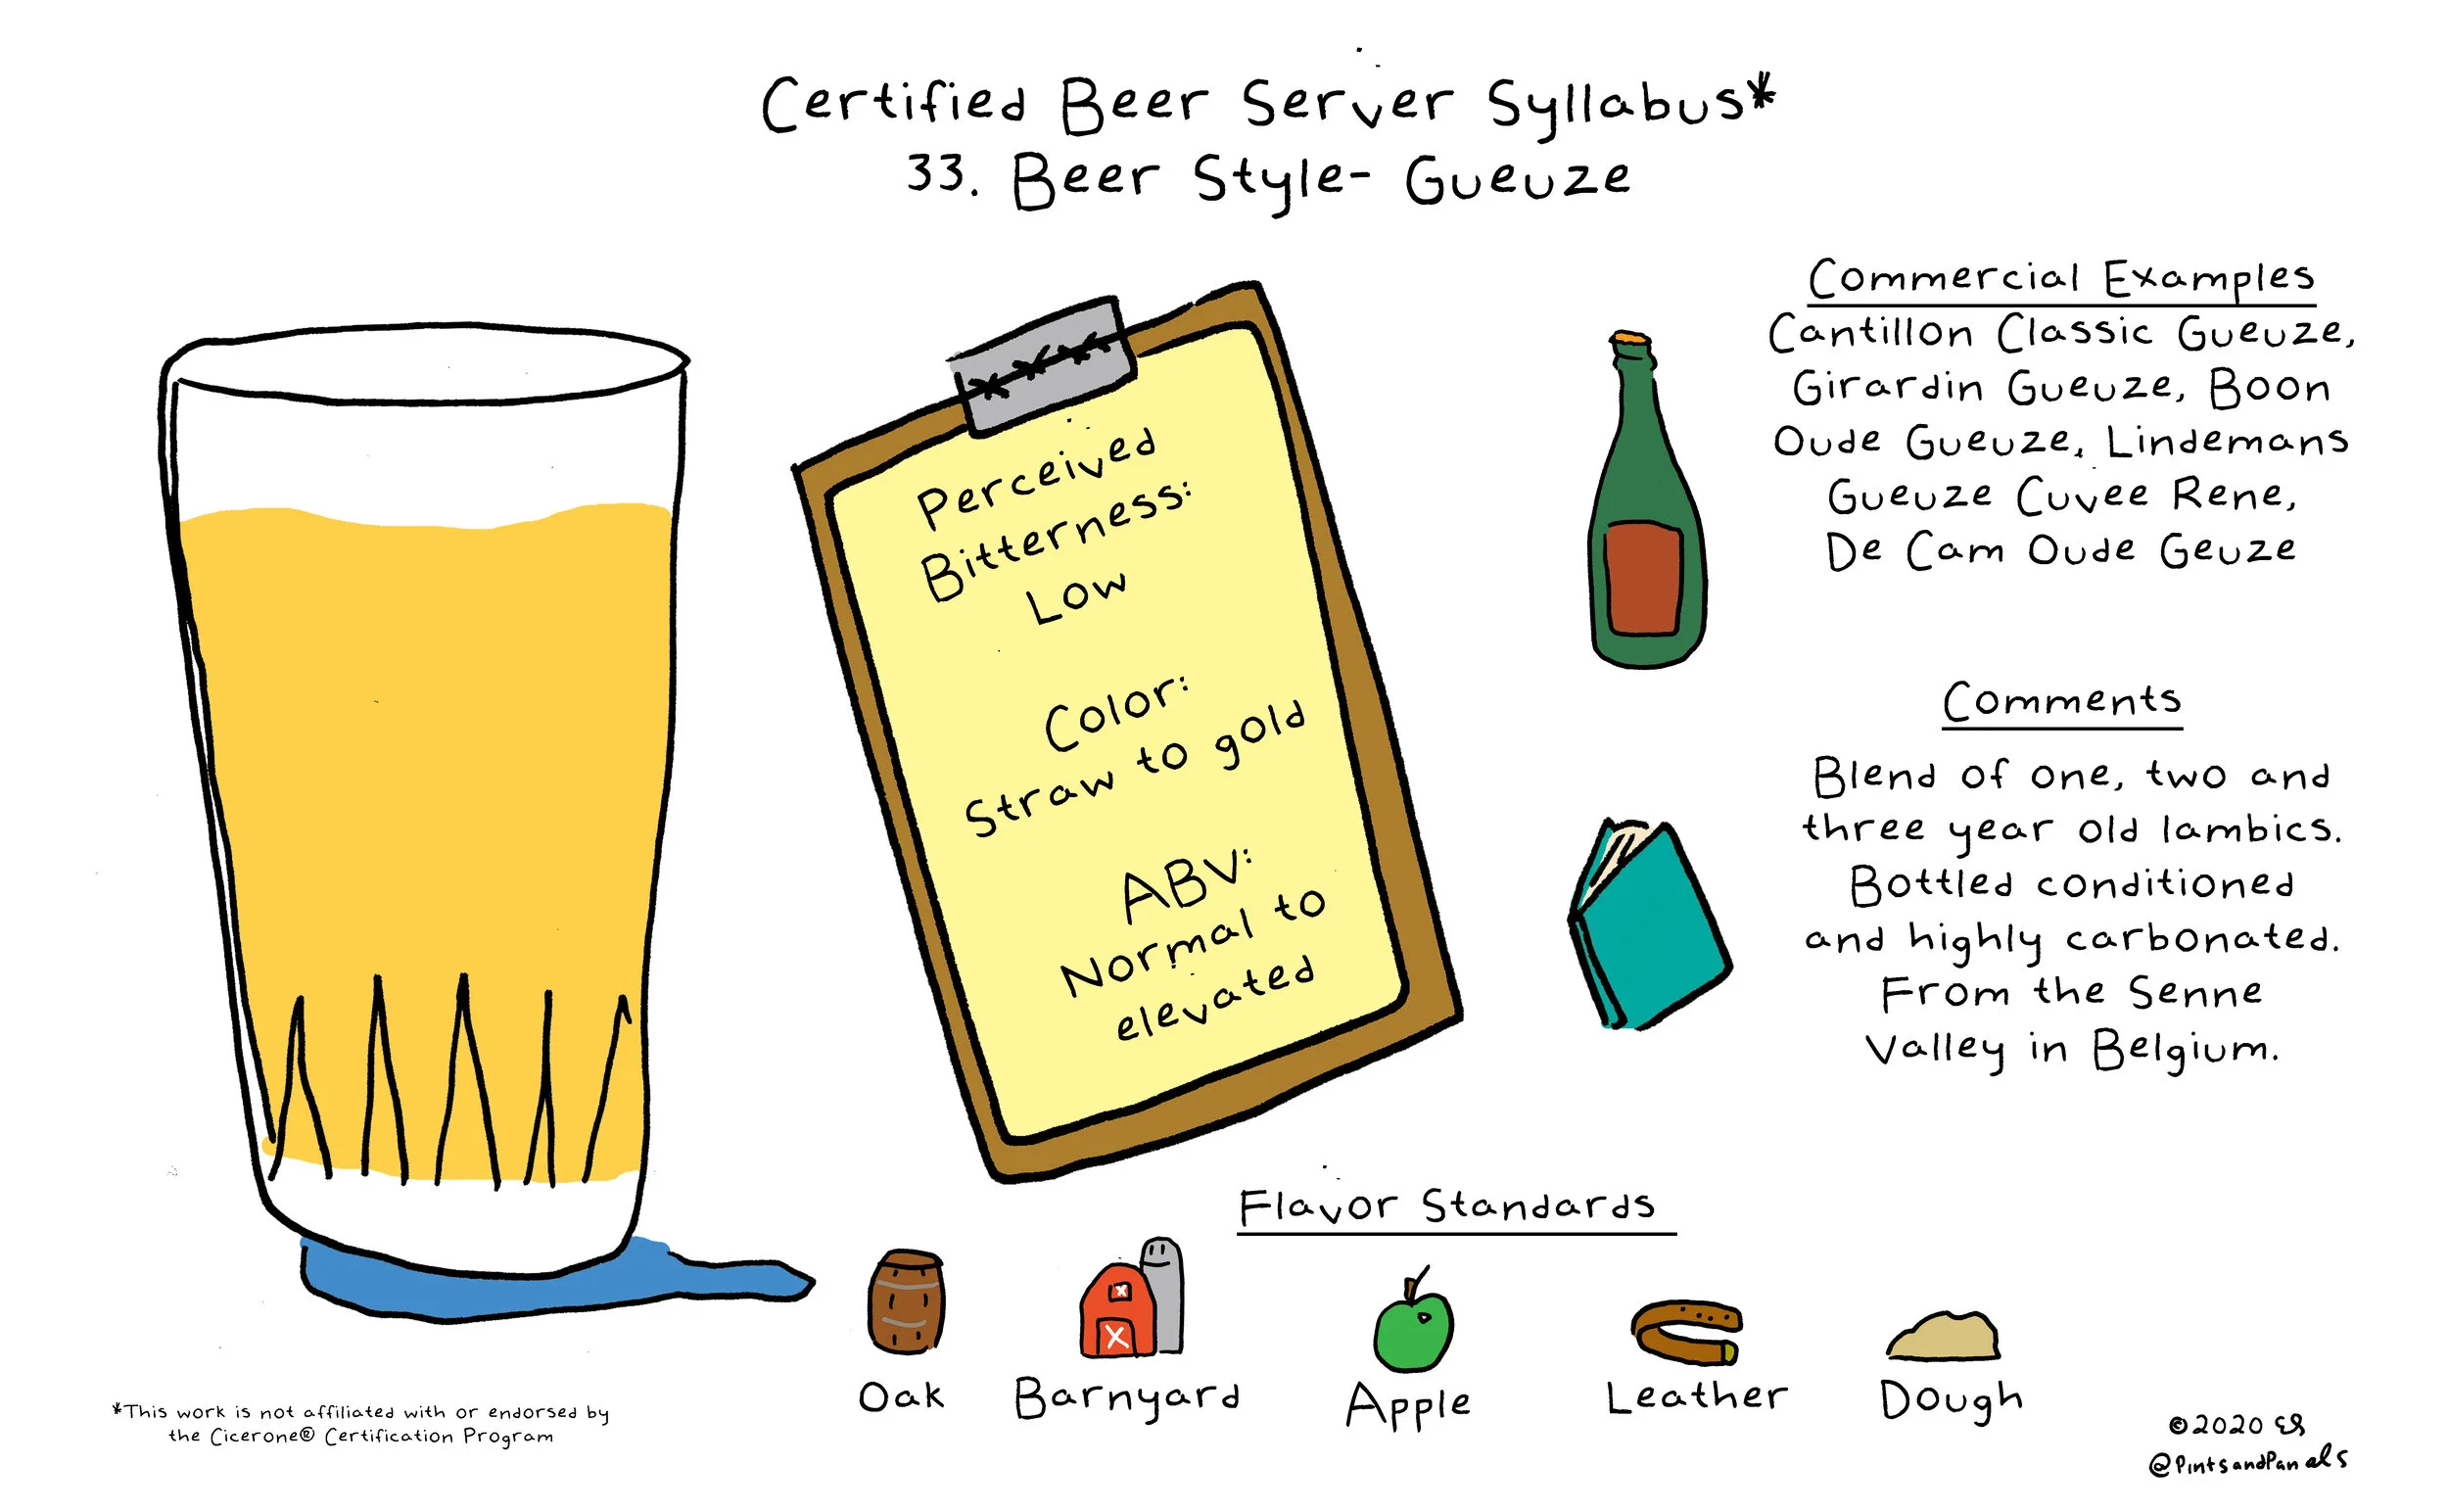 Certified Beer Server Syllabus*
33. Beer Style- Gueuze
Perceived
Bitterness:
Low
Color:
Straw to gold
ABV:
Normal to
elevated
Commercial Examples
Cantillon Classic Gueuze,
Girardin Gueuze, Boon
Oude Gueuze, Lindemans
Gueuze Cuvee Rene,
De Cam Oude Geuze
Comments
Blend of one, two and
three year old lambics.
Bottled conditioned
and highly carbonated.
From the Senne
Valley in Belgium.
Flavor Standards
Oak
Barnyard
Apple
Leather
Dough
*This work is not affiliated with or endorsed by
the Cicerone® Certification Program
©2020 ES
@PintsandPanels